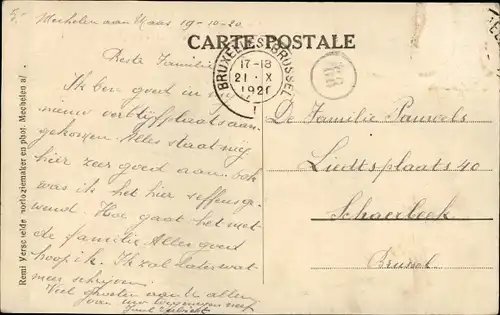 Mechelen aan Maas 19-10-20
CARTE POSTALE
BRUXELLES BRUSSEL
17-18
21 X
1920
1
Beste Familie
Ik ben goed in mijn
nieuw verblijfplaats aan-
gekomen. Alles staat mij
hier zeer goed aan. Ook
was ik het hier seffens ge-
wend. Hoe gaat het met
de familie Allen goed
hoop ik. Ik zal later wat
meer schrijven.
Veel groeten aan U allen
De Familie Pauwels
Liedtsplaats 40
Schaerbeek
Brussel
Remi Verscheide horlogiemaker en phot. Mechelen a/